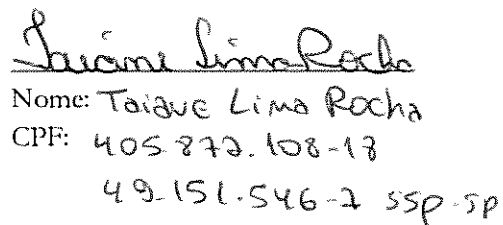 Taiane Lima Rocha
Nome: Taiane Lima Rocha
CPF: 405.872.108-18
49.151.546-7 SSP-SP